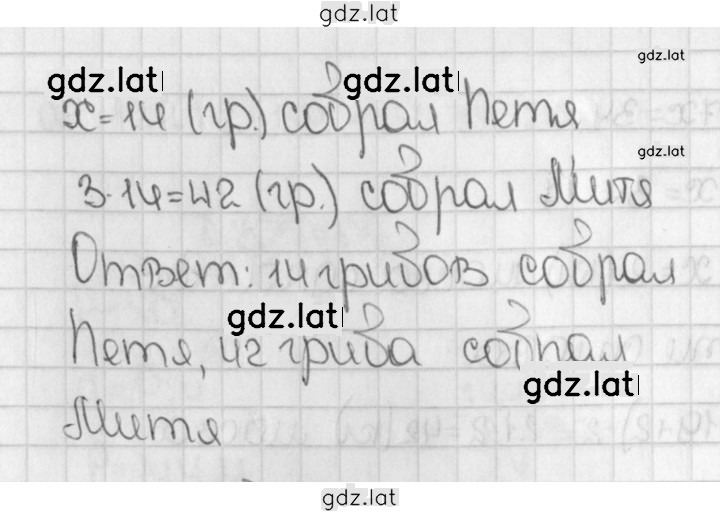 gdz.lat
gdz.lat
gdz.lat gdz.lat
x=14 (гр.) собрал Петя
gdz.lat
3·14=42 (гр.) собрал Митя
Ответ: 14 грибов собрал
gdz.lat
Петя, 42 гриба собрал
gdz.lat
Митя
gdz.lat